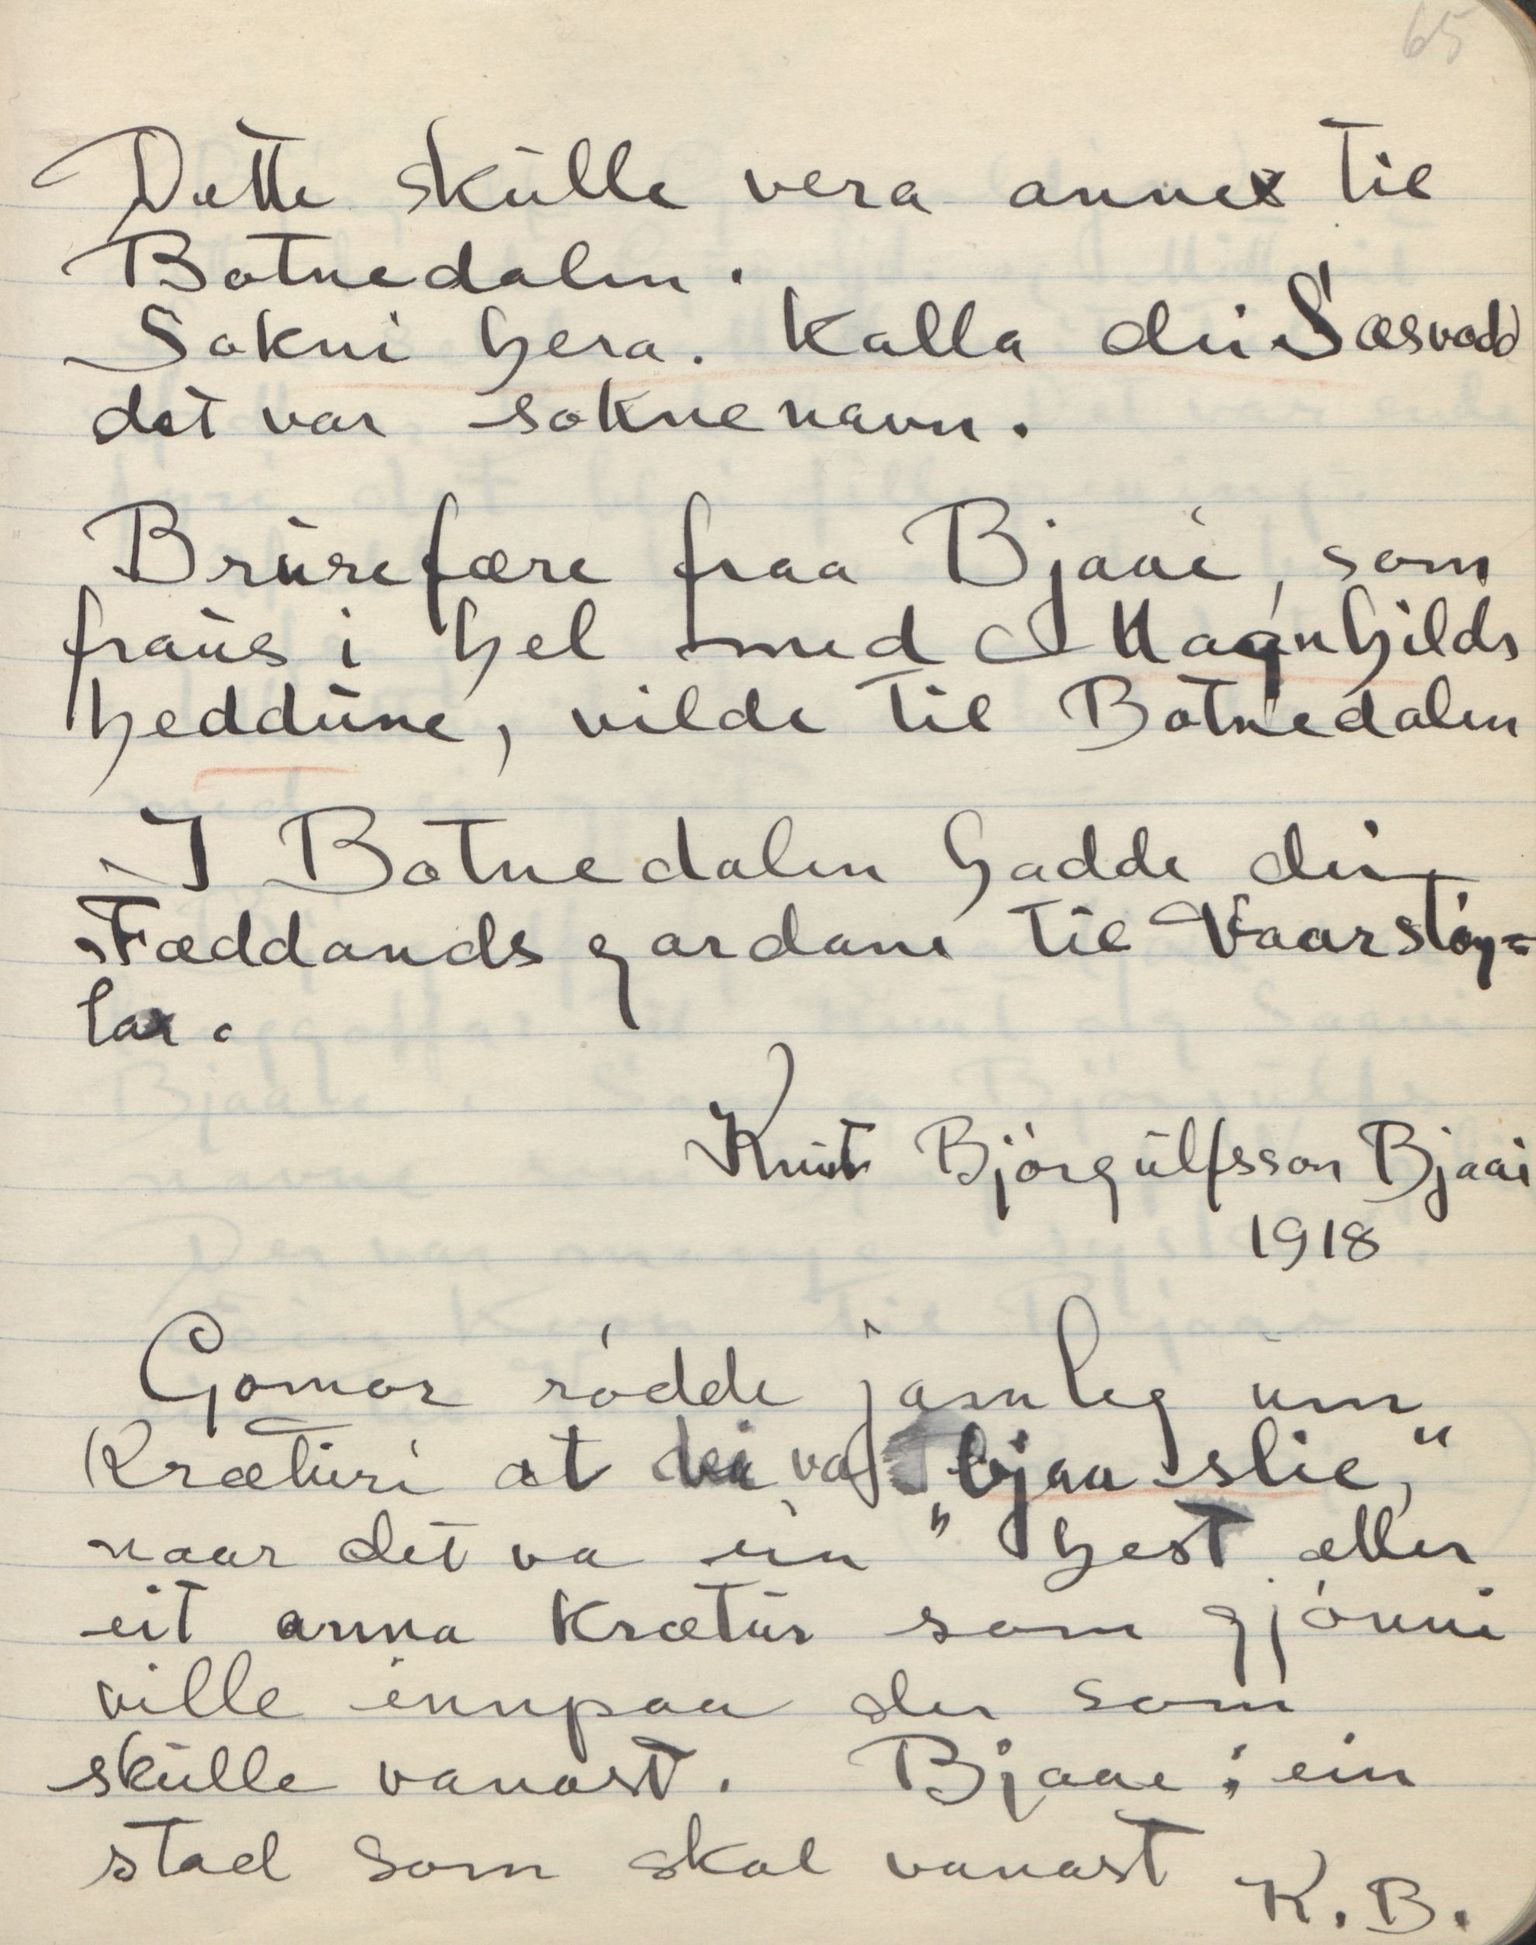 65
Dette skulle vera annex til
Botnedalen.
Sokni hera. Kalla dei Sæsvadd
det var soknenavn.
Brurefære fraa Bjaai, som
fraus i hel med Magnhilds
heddune, vilde til Botnedalen
I Botnedalen hadde dei
Fæddands gardane til Vaarstøy=
lar.
Knut Bjørgulfsson Bjaai
1918
Gomor rødde jamleg um
Kræturi at dei va "bjaa-slie,"
naar det va ein hest eller
eit anna Krætur som gjønni
ville innpaa der som
skulle vanast. Bjaae: ein
stad som skal vanast
K. B.